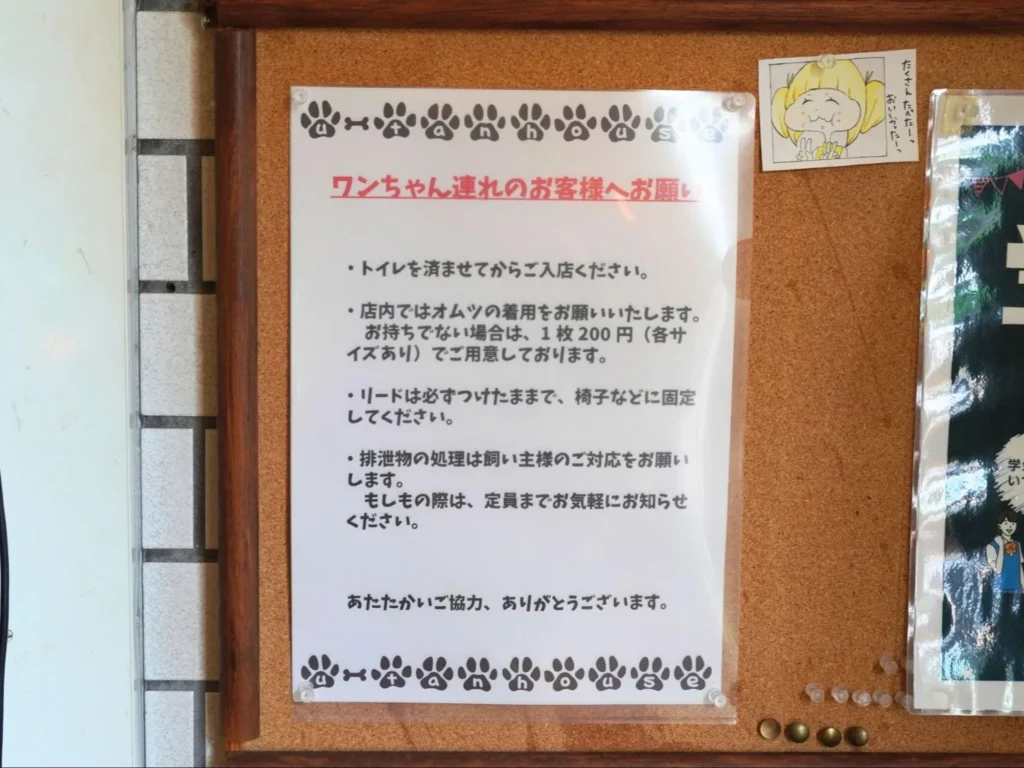 u-tanhouse
ワンちゃん連れのお客様へお願い
・トイレを済ませてからご入店ください。
・店内ではオムツの着用をお願いいたします。
お持ちでない場合は、1枚200円（各サ
イズあり）でご用意しております。
・リードは必ずつけたままで、椅子などに固定
してください。
・排泄物の処理は飼い主様のご対応をお願い
します。
もしもの際は、定員までお気軽にお知らせ
ください。
あたたかいご協力、ありがとうございます。
u-tanhouse
たくさん たべたーっ
おいしかったーっ